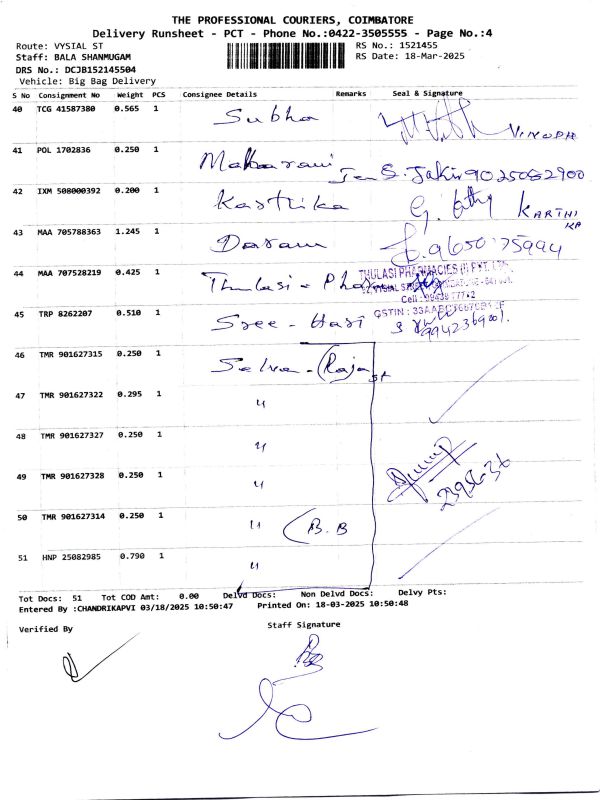 THE PROFESSIONAL COURIERS, COIMBATORE
Delivery Runsheet - PCT - Phone No.:0422-3505555 - Page No.:4
Route: VYSIAL ST
RS No.: 1521455
Staff: BALA SHANMUGAM
RS Date: 18-Mar-2025
DRS No.: DCJB152145504
Vehicle: Big Bag Delivery
S No Consignment No Weight PCS Consignee Details Remarks Seal & Signature
40 TCG 41587380 0.565 1 Subha VINODH
41 POL 1702836 0.250 1 Maharani S. Jakir 9025082900
42 IXM 508000392 0.200 1 Karthika G. KARTHI
43 MAA 705788363 1.245 1 9650175994
44 MAA 707528219 0.425 1 Thulasi - THULASI PHARMACIES (I) PVT. LTD.
45 TRP 8262207 0.510 1 Sree - Hari
46 TMR 901627315 0.250 1 Selva - (Raja st
47 TMR 901627322 0.295 1 "
48 TMR 901627327 0.250 1 "
49 TMR 901627328 0.250 1 "
50 TMR 901627314 0.250 1 " (B.B
51 HNP 25082985 0.790 1 "
Tot Docs: 51 Tot COD Amt: 0.00 Delvd Docs: Non Delvd Docs: Delvy Pts:
Entered By :CHANDRIKAPVI 03/18/2025 10:50:47 Printed On: 18-03-2025 10:50:48
Verified By
Staff Signature